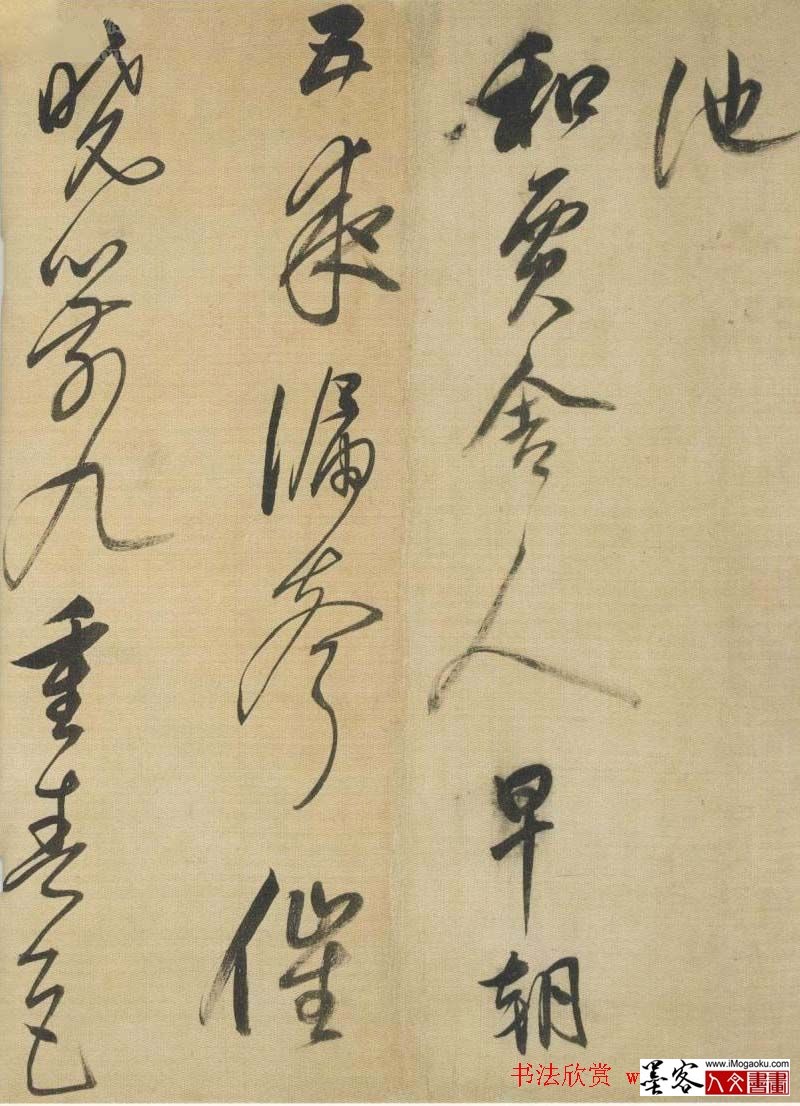 池
和賈舍人早朝
五夜漏聲催
曉箭九重春色
书法欣赏 w
墨客
www.iMogaoku.com
人文書畫